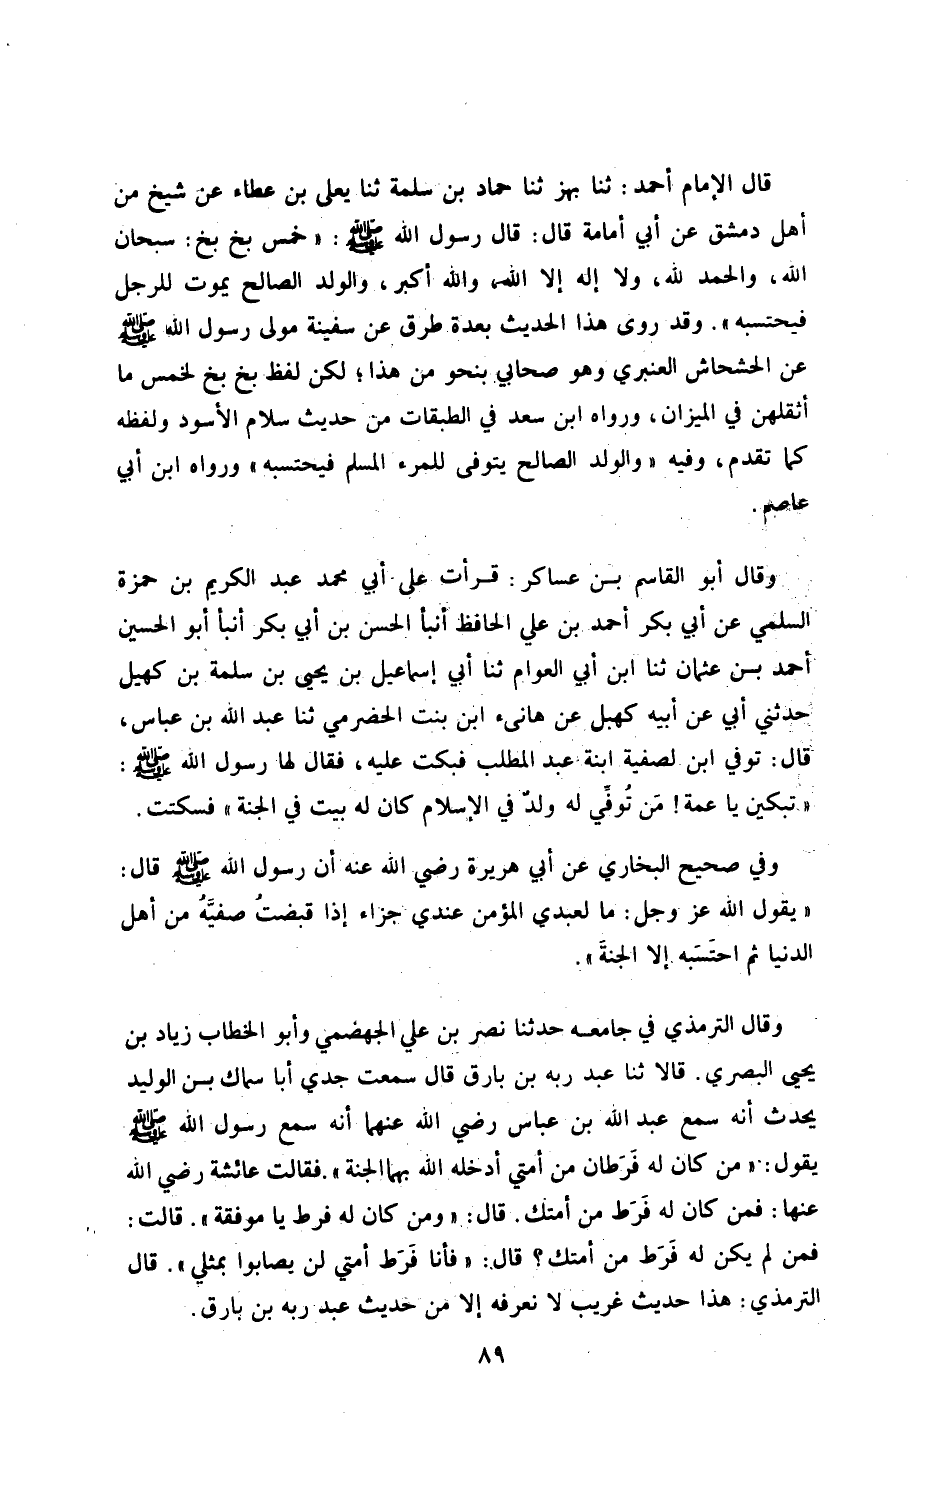 قال الإمام أحمد : ثنا بهز ثنا حماد بن سلمة ثنا يعلى بن عطاء عن شيخ من
أهل دمشق عن أبي أمامة قال : قال رسول الله ﷺ : « خمس بخ بخ : سبحان
الله ، والحمد لله ، ولا إله إلا الله ، والله أكبر ، والولد الصالح يموت للرجل
فيحتسبه » . وقد روى هذا الحديث بعدة طرق عن سفينة مولى رسول الله ﷺ
عن الحشحاش العنبري وهو صحابي بنحو من هذا ؛ لكن لفظ بخ بخ لخمس ما
أثقلهن في الميزان ، ورواه ابن سعد في الطبقات من حديث سلام الأسود ولفظه
كما تقدم ، وفيه « والولد الصالح يتوفى للمرء المسلم فيحتسبه » ورواه ابن أبي
عاصم .
وقال أبو القاسم بن عساكر : قرأت على أبي محمد عبد الكريم بن حمزة
السلمي عن أبي بكر أحمد بن علي الحافظ أنبأ الحسن بن أبي بكر أنبأ أبو الحسين
أحمد بن عثمان ثنا ابن أبي العوام ثنا أبي إسماعيل بن يحيى بن سلمة بن كهيل
حدثني أبي عن أبيه كهيل عن هانىء ابن بنت الحضرمي ثنا عبد الله بن عباس ،
قال : توفي ابن لصفية ابنة عبد المطلب فبكت عليه ، فقال لها رسول الله ﷺ :
« تبكين يا عمة ! مَن تُوفِّي له ولدٌ في الإسلام كان له بيت في الجنة » فسكتت .
وفي صحيح البخاري عن أبي هريرة رضي الله عنه أن رسول الله ﷺ قال :
« يقول الله عز وجل : ما لعبدي المؤمن عندي جزاء إذا قبضتُ صفيَّهُ من أهل
الدنيا ثم احتَسَبه إلا الجنةَ » .
وقال الترمذي في جامعه حدثنا نصر بن علي الجهضمي وأبو الخطاب زياد بن
يحيى البصري . قالا ثنا عبد ربه بن بارق قال سمعت جدي أبا سماك بن الوليد
يحدث أنه سمع عبد الله بن عباس رضي الله عنهما أنه سمع رسول الله ﷺ
يقول : « من كان له فَرَطان من أمتي أدخله الله بهما الجنة » . فقالت عائشة رضي الله
عنها : فمن كان له فَرَط من أمتك . قال : « ومن كان له فرط يا موفقة » . قالت :
فمن لم يكن له فَرَط من أمتك ؟ قال : « فأنا فَرَط أمتي لن يصابوا بمثلي » . قال
الترمذي : هذا حديث غريب لا نعرفه إلا من حديث عبد ربه بن بارق .
٨٩